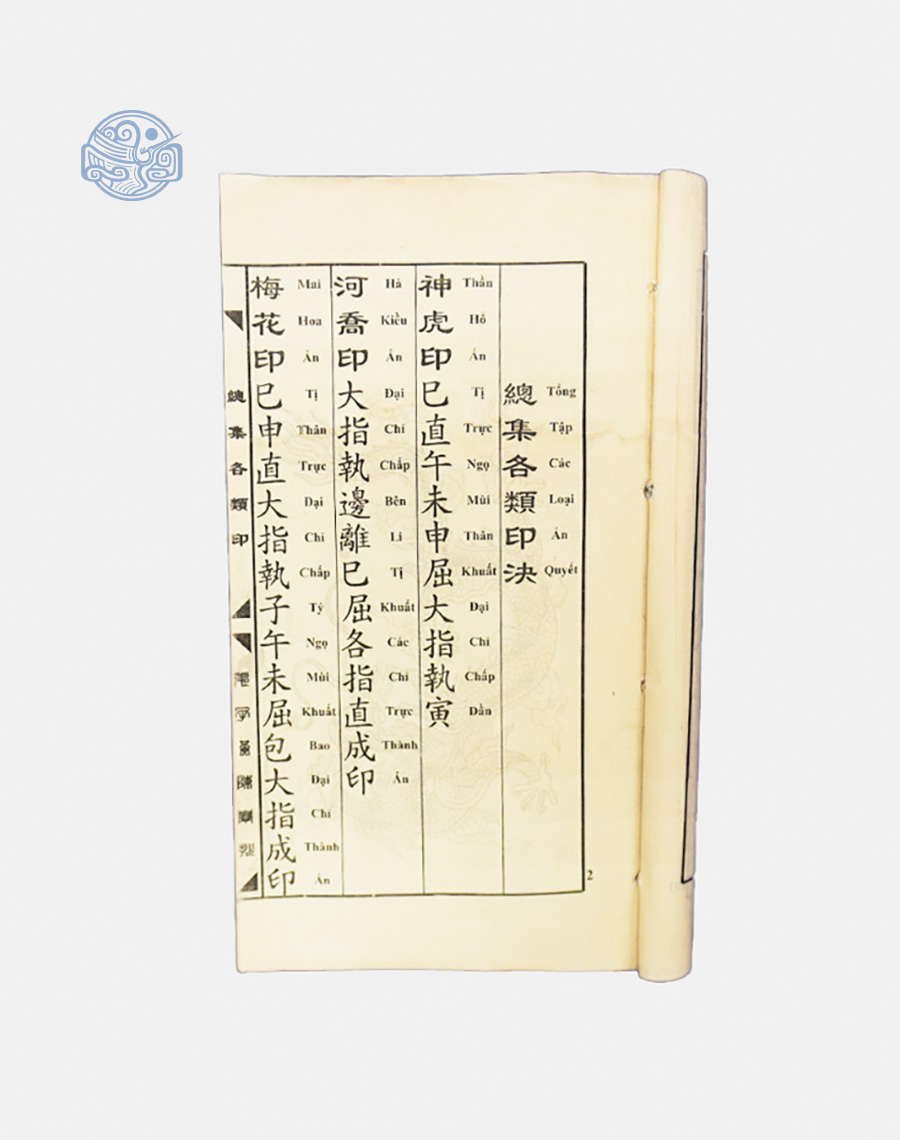 總集各類印決
Tổng Tập Các Loại Ấn Quyết
神虎印巳直午未申屈大指執寅
Thần Hổ Ấn Tị Trực Ngọ Mùi Thân Khuất Đại Chỉ Chấp Dần
河喬印大指執邊離巳屈各指直成印
Hà Kiều Ấn Đại Chỉ Chấp Bên Li Tị Khuất Các Chỉ Trực Thành Ấn
梅花印巳申直大指執子午未屈包大指成印
Mai Hoa Ấn Tị Thân Trực Đại Chỉ Chấp Tý Ngọ Mùi Khuất Bao Đại Chỉ Thành Ấn
總集各類印
2